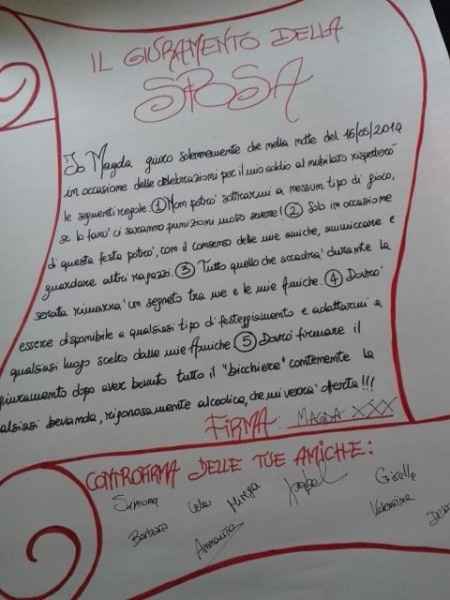 IL GIURAMENTO DELLA
SPOSA
Io Magda giuro solennemente che nella notte del 16/05/2014
in occasione delle celebrazioni per il mio addio al nubilato rispetterò
le seguenti regole. ① Non potrò sottrarmi a nessun tipo di gioco,
se lo farò ci saranno punizioni molto severe! ② Solo in occasione
di questa festa potrò, con il consenso delle mie amiche, ammiccare e
guardare altri ragazzi. ③ Tutto quello che accadrà durante la
serata rimarrà un segreto tra me e le mie Amiche. ④ Dovrò
essere disponibile a qualsiasi tipo di festeggiamento e adattarmi a
qualsiasi luogo scelto dalle mie Amiche ⑤ Dovrò firmare il
giuramento dopo aver bevuto tutto il "bicchiere" contenente la
alsiasi bevanda, rigorosamente alcolica, che mi verrà offerta!!!
FIRMA MAGDA XXX
CONTROFIRMA DELLE TUE AMICHE:
Simona Mirija Giselle
Barbara Annarita Valentina